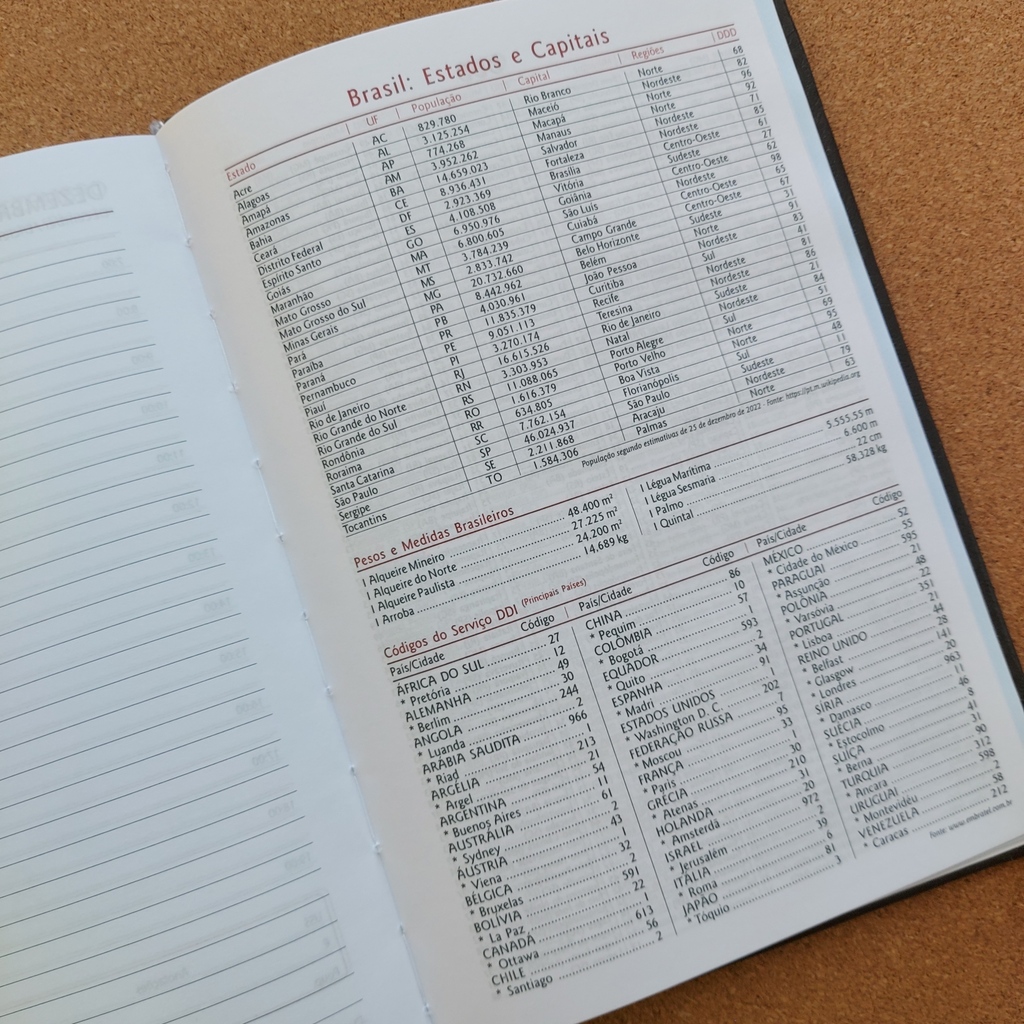 Brasil: Estados e Capitais
Estado UF População Capital Regiões DDD
Acre AC 829.780 Rio Branco Norte 68
Alagoas AL 3.125.254 Maceió Nordeste 82
Amapá AP 774.268 Macapá Norte 96
Amazonas AM 3.952.262 Manaus Norte 92
Bahia BA 14.659.023 Salvador Nordeste 71
Ceará CE 8.936.431 Fortaleza Nordeste 85
Distrito Federal DF 2.923.369 Brasília Centro-Oeste 61
Espírito Santo ES 4.108.508 Vitória Sudeste 27
Goiás GO 6.950.976 Goiânia Centro-Oeste 62
Maranhão MA 6.800.605 São Luís Nordeste 98
Mato Grosso MT 3.784.239 Cuiabá Centro-Oeste 65
Mato Grosso do Sul MS 2.833.742 Campo Grande Centro-Oeste 67
Minas Gerais MG 20.732.660 Belo Horizonte Sudeste 31
Pará PA 8.442.962 Belém Norte 91
Paraíba PB 4.030.961 João Pessoa Nordeste 83
Paraná PR 11.835.379 Curitiba Sul 41
Pernambuco PE 9.051.113 Recife Nordeste 81
Piauí PI 3.270.174 Teresina Nordeste 86
Rio de Janeiro RJ 16.615.526 Rio de Janeiro Sudeste 21
Rio Grande do Norte RN 3.303.953 Natal Nordeste 84
Rio Grande do Sul RS 11.088.065 Porto Alegre Sul 51
Rondônia RO 1.616.379 Porto Velho Norte 69
Roraima RR 634.805 Boa Vista Norte 95
Santa Catarina SC 7.762.154 Florianópolis Sul 48
São Paulo SP 46.024.937 São Paulo Sudeste 11
Sergipe SE 2.211.868 Aracaju Nordeste 79
Tocantins TO 1.584.306 Palmas Norte 63
População segundo estimativas de 25 de dezembro de 2022 - Fonte: https://pt.m.wikipedia.org
Pesos e Medidas Brasileiros
1 Alqueire Mineiro 48.400 m²
1 Alqueire do Norte 27.225 m²
1 Alqueire Paulista 24.200 m²
1 Arroba 14,689 kg
1 Légua Marítima 5.555,55 m
1 Légua Sesmaria 6.600 m
1 Palmo 22 cm
1 Quintal 58,328 kg
Códigos do Serviço DDI (Principais Países)
País/Cidade Código
ÁFRICA DO SUL 27
* Pretória 12
ALEMANHA 49
* Berlim 30
ANGOLA 244
* Luanda 2
ARÁBIA SAUDITA 966
* Riad
ARGÉLIA 213
* Argel 21
ARGENTINA 54
* Buenos Aires 11
AUSTRÁLIA 61
* Sydney 2
ÁUSTRIA 43
* Viena 1
BÉLGICA 32
* Bruxelas 2
BOLÍVIA 591
* La Paz 22
CANADÁ 1
* Ottawa 613
CHILE 56
* Santiago 2
País/Cidade Código
CHINA 86
* Pequim 10
COLÔMBIA 57
* Bogotá 1
EQUADOR 593
* Quito 2
ESPANHA 34
* Madri 91
ESTADOS UNIDOS 1
* Washington D. C. 202
FEDERAÇÃO RUSSA 7
* Moscou 95
FRANÇA 33
* Paris 1
GRÉCIA 30
* Atenas 210
HOLANDA 31
* Amsterdã 20
ISRAEL 972
* Jerusalém 2
ITÁLIA 39
* Roma 6
JAPÃO 81
* Tóquio 3
País/Cidade Código
MÉXICO 52
* Cidade do México 55
PARAGUAI 595
* Assunção 21
POLÔNIA 48
* Varsóvia 22
PORTUGAL 351
* Lisboa 21
REINO UNIDO 44
* Belfast 28
* Glasgow 141
* Londres 20
SÍRIA 963
* Damasco 11
SUÉCIA 46
* Estocolmo 8
SUÍÇA 41
* Berna 31
TURQUIA 90
* Ancara 312
URUGUAI 598
* Montevidéu 2
VENEZUELA 58
* Caracas 212
Fonte: www.embratel.com.br